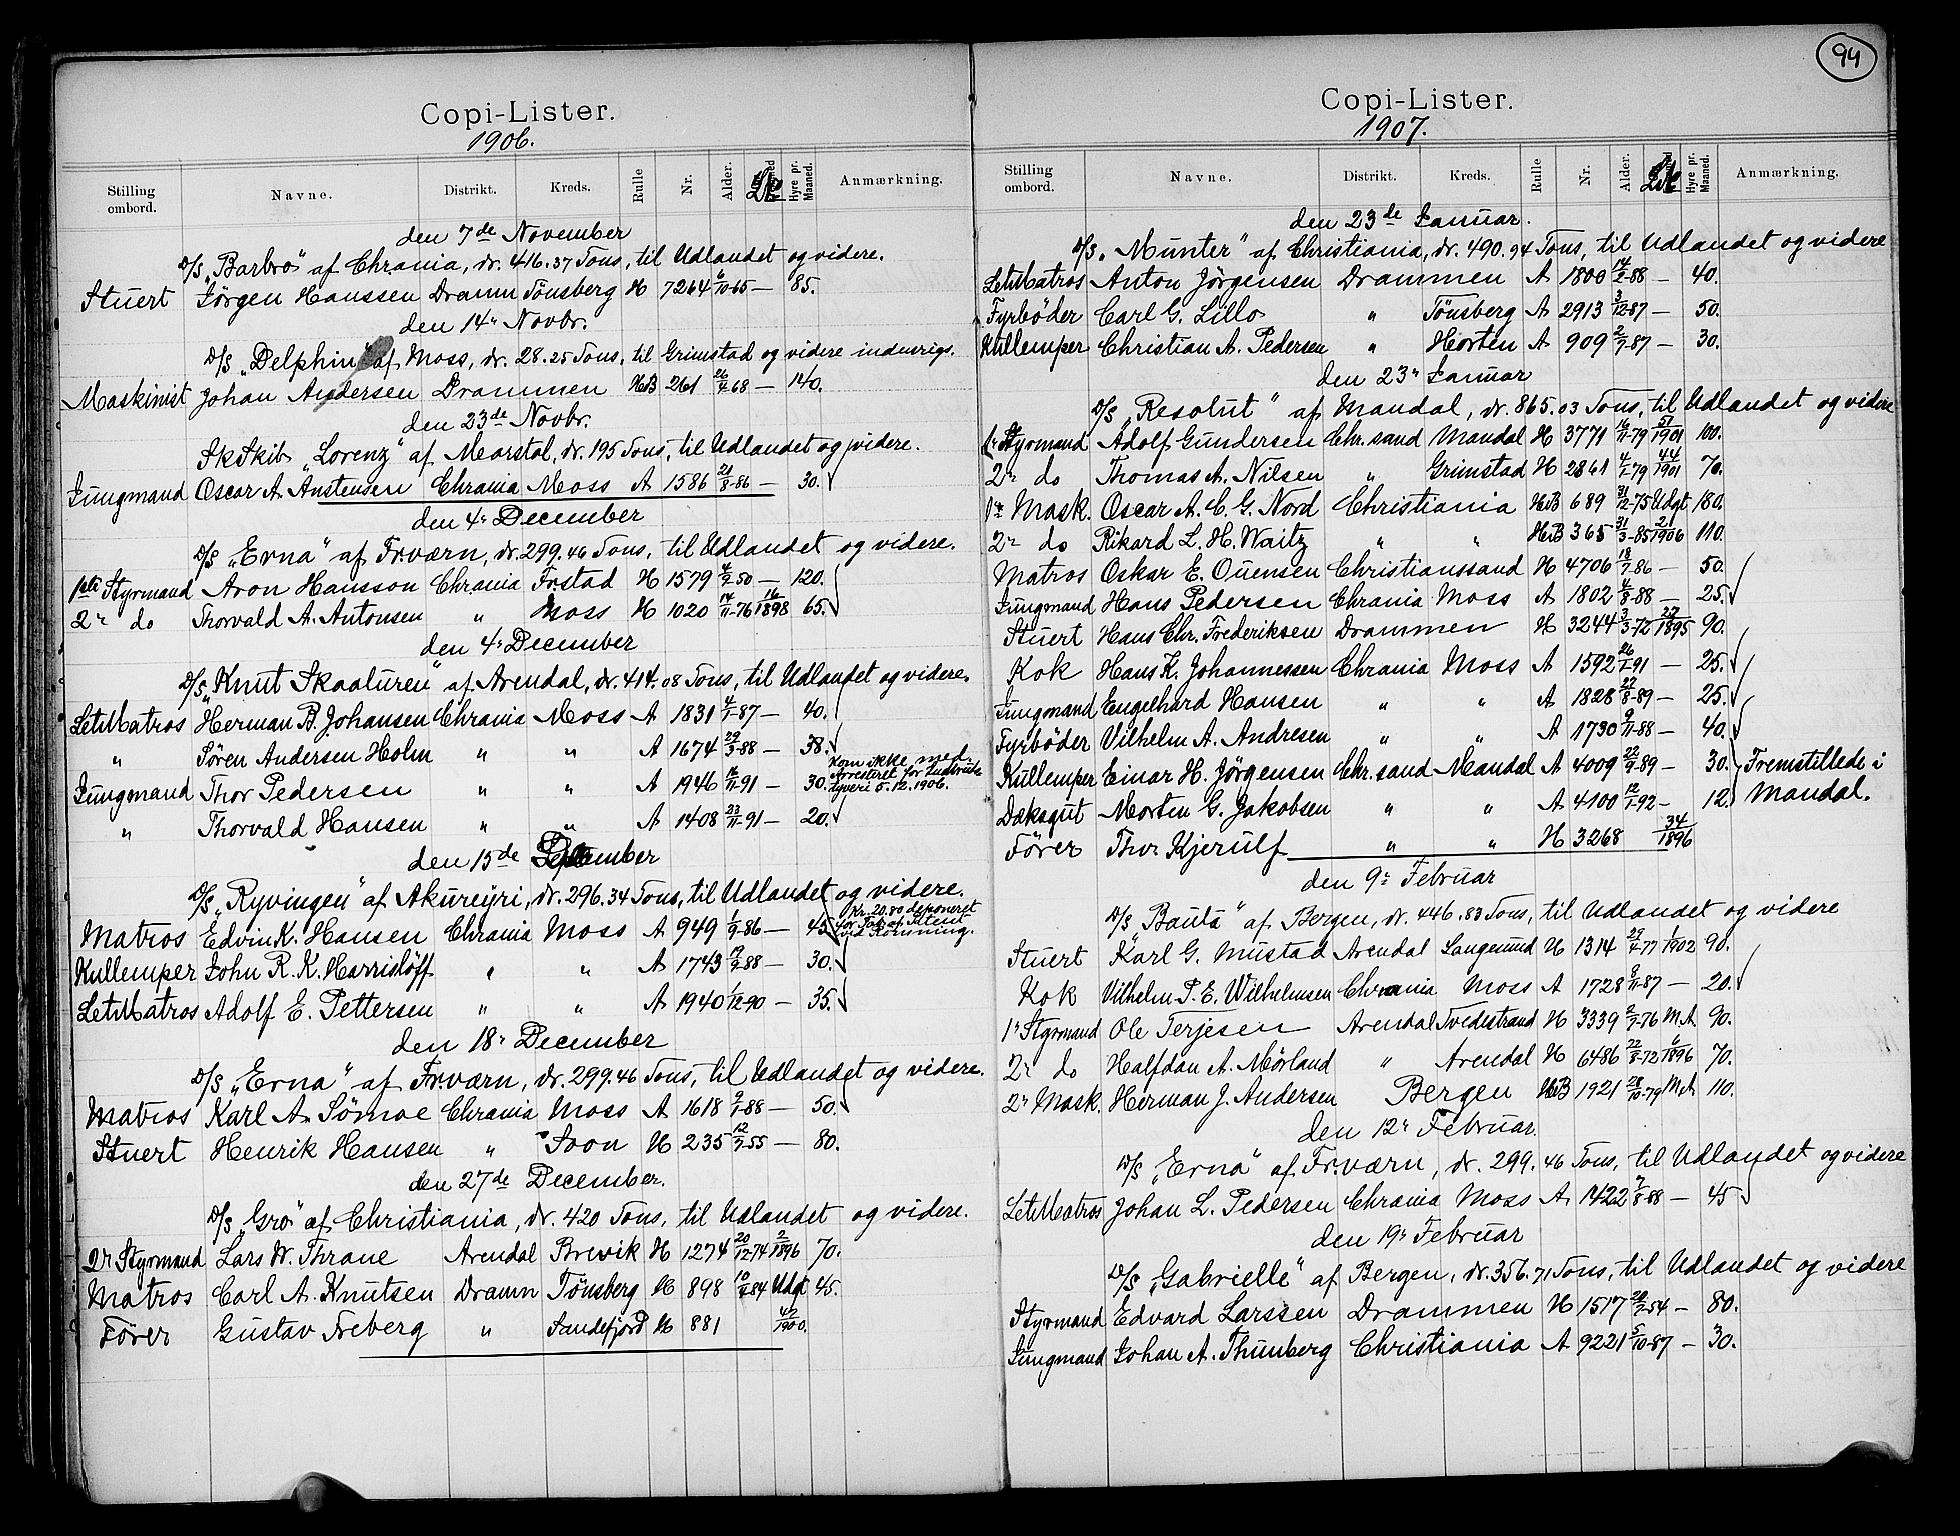 94
Copi-Lister.
1906.
Stilling ombord. Navne. Distrikt. Kreds. Rulle Nr. Alder. Hyre pr. Maaned. Anmærkning.
den 7de November
D/S „Barbro" af Chrania, dr. 416.37 Tons, til Udlandet og videre.
Stuert Jørgen Hanssen Dramn Tönsberg H 7264 6/10-65 — 85.
den 14r Novbr.
D/S „Delphin" af Moss, dr. 28.25 Tons, til Grimstad og videre indenrigs.
Maskinist Johan Andersen Drammen HB 261 26/4-68 — 140.
den 23de Novbr.
SkSkib „Lorenz" af Marstal, dr. 195 Tons, til Udlandet og videre.
Jungmand Oscar A. Anstensen Chrania Moss A 1586 21/8-86 — 30.
den 4r December
D/S „Erna" af Frværn, dr. 299.46 Tons, til Udlandet og videre.
1ste Styrmand Aron Hansson Chrania Frstad H 1579 4/2-50 — 120.
2r do Thorvald A. Antonsen " Moss H 1020 14/11-76 16/1898 65.
den 4r December
D/S „Knut Skaaluren" af Arendal, dr. 414.08 Tons, til Udlandet og videre.
LetMatros Herman B. Johansen Chrania Moss A 1831 4/1-87 — 40.
" Sören Andersen Holm " " A 1674 29/3-88 — 38.
Jungmand Thor Pedersen " " A 1946 16/11-91 — 30. Kom ikke med. Arresteret for tyveri 5.12.1906.
" Thorvald Hansen " " A 1408 23/11-91 — 20.
den 15de December
D/S „Ryvingen" af Akureyri, dr. 296.34 Tons, til Udlandet og videre.
Matros Edvin K. Hansen Chrania Moss A 949 1/9-86 — 45. Kr. 20.80 deponeret for Tab af Attest ved Römning.
Kullemper John R. K. Harrislöff " " A 1743 19/2-88 — 30.
LetMatros Adolf E. Pettersen " " A 1940 1/12-90 — 35.
den 18r December
D/S „Erna" af Frværn, dr. 299.46 Tons, til Udlandet og videre.
Matros Karl A. Sömoe Chrania Moss A 1618 9/1-88 — 50.
Stuert Henrik Hansen " Soon H 235 12/7-55 — 80.
den 27de December.
D/S „Gro" af Christiania, dr. 420 Tons, til Udlandet og videre.
2r Styrmand Lars W. Thrane Arendal Brevik H 1274 20/12-74 2/1896 70.
Matros Carl A. Knutsen Dramn Tönsberg H 898 10/4-84 Udgt 45.
Förer Gustav Treberg " Sandefjord H 881 42/1900.
Copi-Lister.
1907.
Stilling ombord. Navne. Distrikt. Kreds. Rulle Nr. Alder. Hyre pr. Maaned. Anmærkning.
den 23de Januar.
D/S „Munter" af Christiania, dr. 490.94 Tons, til Udlandet og videre
LetMatros Anton Jörgensen Drammen A 1800 14/2-88 — 40.
Fyrböder Carl G. Lillo " Tönsberg A 2913 3/12-87 — 50.
Kullemper Christian A. Pedersen " Horten A 909 2/7-87 — 30.
den 23r Januar
D/S „Resolut" af Mandal, dr. 865.03 Tons, til Udlandet og videre
1r Styrmand Adolf Gundersen Chr.sand Mandal H 3771 16/11-79 51/1901 100.
2r do Thomas A. Nilsen " Grimstad H 2861 4/1-79 44/1901 70.
1r Mask. Oscar A. C. G. Nord Christiania HB 689 31/12-75 Udgt 180.
2r do Rikard L. H. Waitz " " HB 365 31/3-85 21/1906 110.
Matros Oskar E. Ouensen Christianssand H 4706 18/7-86 — 50.
Jungmand Hans Pedersen Chrania Moss A 1802 4/8-88 — 25.
Stuert Hans Chr. Frederiksen Drammen H 3244 3/3-72 27/1895 90.
Kok Hans K. Johannessen Chrania Moss A 1592 26/1-91 — 25.
Jungmand Engelhard Hansen " " A 1828 27/8-89 — 25.
Fyrböder Vilhelm A. Andresen " " A 1730 9/11-88 — 40.
Kullemper Einar H. Jörgensen Chr.sand Mandal A 4009 22/9-89 — 30. Fremstillede i
Dæksgut Morten G. Jakobsen " " A 4100 12/1-92 — 12. Mandal.
Förer Thor Kjerulf " " H 3268 34/1896
den 9r Februar
D/S „Bauta" af Bergen, dr. 446.83 Tons, til Udlandet og videre
Stuert Karl G. Mustad Arendal Langesund H 1314 29/4-77 1/1902 90.
Kok Vilhelm P. E. Wilhelmsen Chrania Moss A 1728 9/11-87 — 20.
1r Styrmand Ole Terjesen Arendal Tvedestrand H 3339 2/7-76 M.A 90.
2r do Halfdan A. Mörland " Arendal H 6486 22/8-72 6/1896 70.
2r Mask. Herman J. Andersen Bergen HB 1921 28/10-79 M.A 110.
den 12r Februar.
D/S „Erna" af Frværn, dr. 299.46 Tons, til Udlandet og videre
LetMatros Johan L. Pedersen Chrania Moss A 1422 7/8-88 — 45
den 19r Februar
D/S „Gabrielle" af Bergen, dr. 356.71 Tons, til Udlandet og videre
Styrmand Edvard Larssen Drammen H 1517 28/2-54 — 80.
Jungmand Johan A. Thunberg Christiania A 9221 5/10-87 — 30.